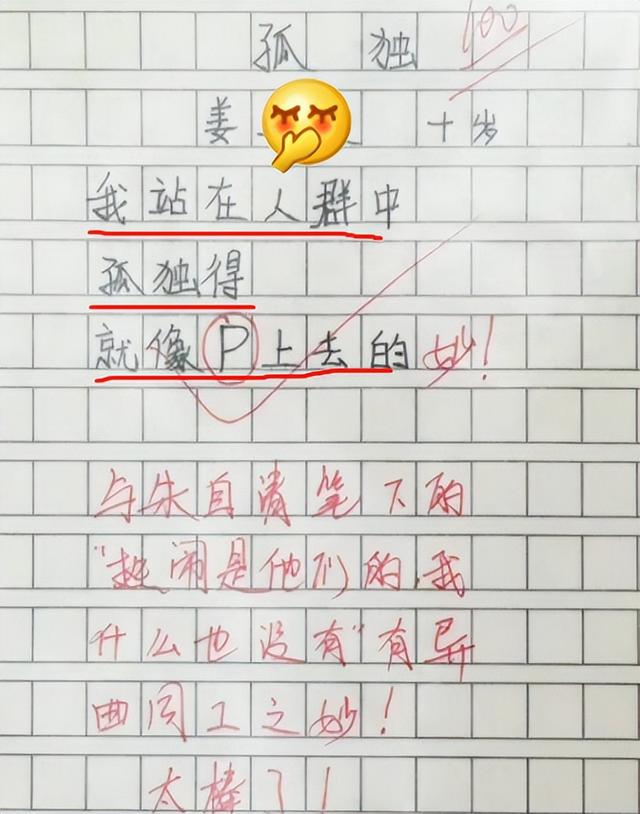 孤独 100
姜 十岁
我站在人群中
孤独得
就像P上去的 妙！
与朱自清笔下的
“热闹是他们的,我
什么也没有”有异
曲同工之妙！
太棒了！